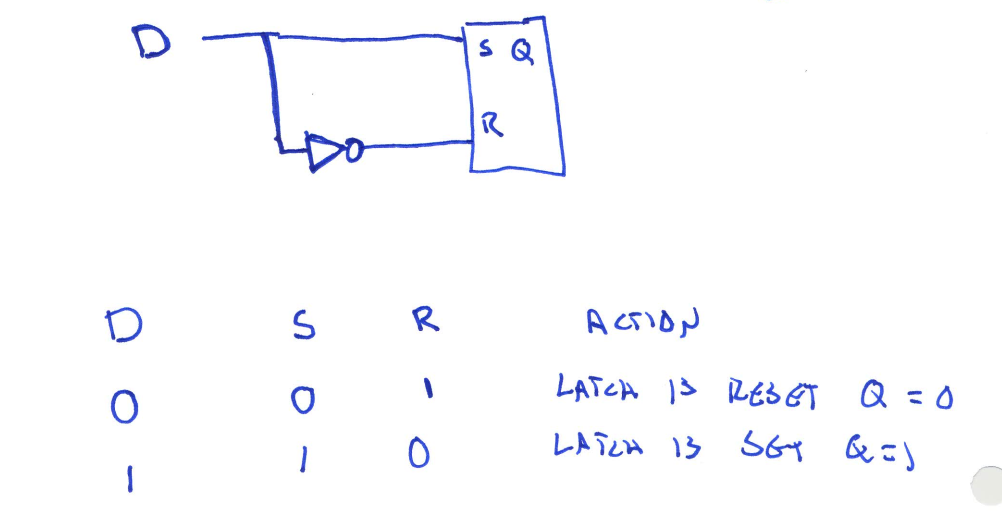 D
S Q
R
D S R ACTION
0 0 1 LATCH IS RESET Q = 0
1 1 0 LATCH IS SET Q = 1